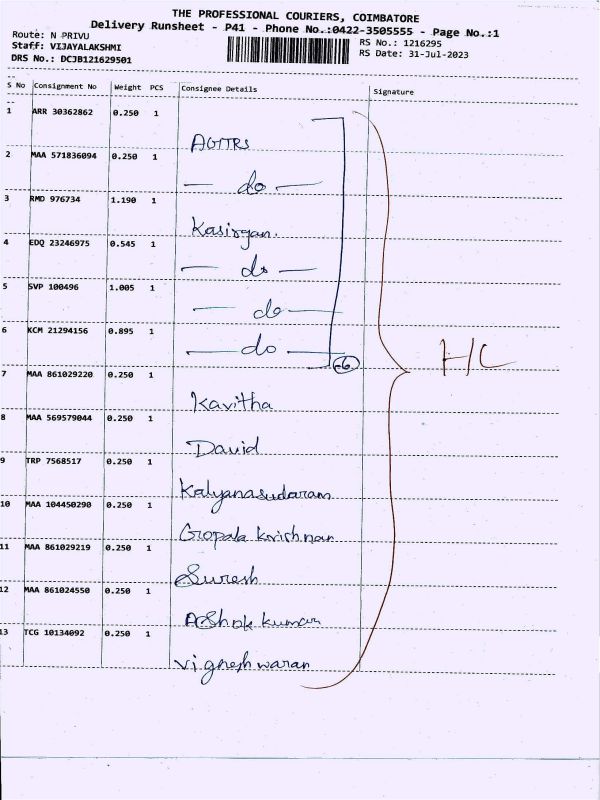 THE PROFESSIONAL COURIERS, COIMBATORE
Delivery Runsheet - P41 - Phone No.:0422-3505555 - Page No.:1
Route: N PRIVU
Staff: VIJAYALAKSHMI
DRS No.: DCJB121629501
RS No.: 1216295
RS Date: 31-Jul-2023
S No Consignment No Weight PCS Consignee Details Signature
1 ARR 30362862 0.250 1
2 MAA 571836094 0.250 1
— do —
3 RMD 976734 1.190 1
Kasirajan.
4 EDQ 23246975 0.545 1
— do —
5 SVP 100496 1.005 1
— do —
6 KCM 21294156 0.895 1
— do —
6
H/C
7 MAA 861029220 0.250 1
Kavitha
8 MAA 569579044 0.250 1
David
9 TRP 7568517 0.250 1
Kalyanasudaram
10 MAA 104450290 0.250 1
Gopala Krishnan
11 MAA 861029219 0.250 1
Suresh
12 MAA 861024550 0.250 1
Ashok kumar
13 TCG 10134092 0.250 1
Vigneshwaran